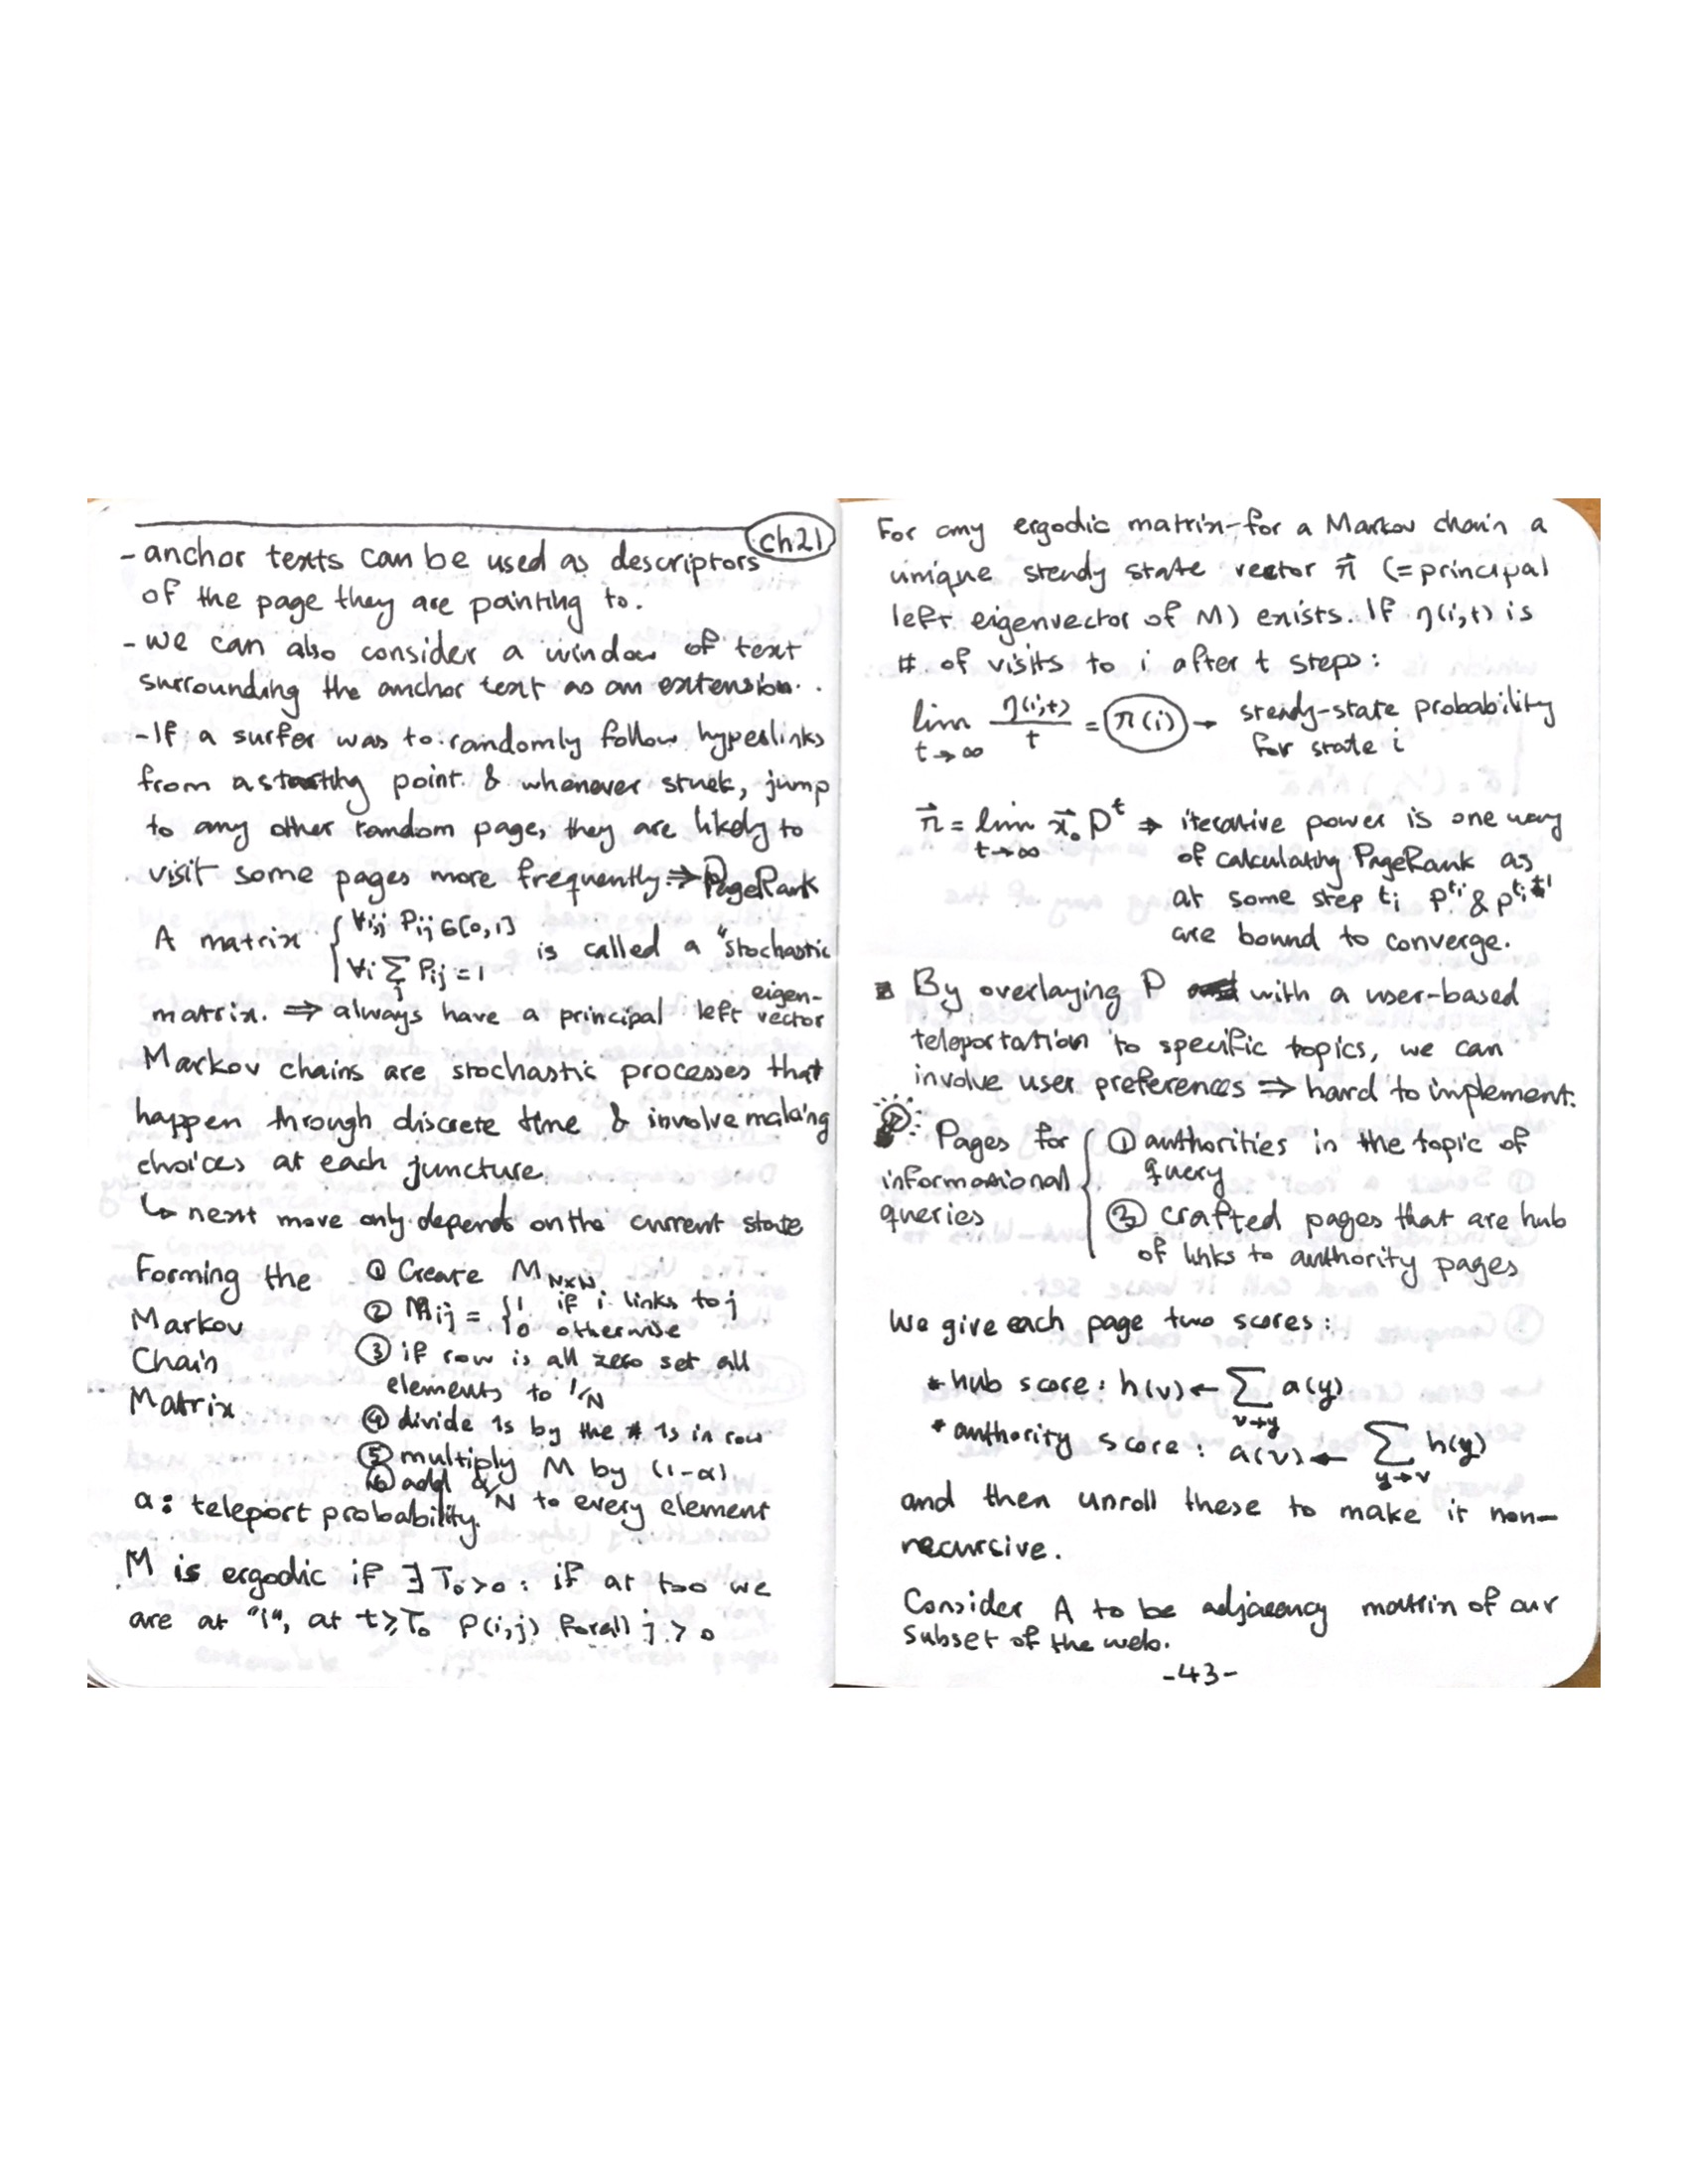 ch21
- anchor texts can be used as descriptors
of the page they are pointing to.
- we can also consider a window of text
surrounding the anchor text as an extension.
- If a surfer was to randomly follow hyperlinks
from a starting point & whenever stuck, jump
to any other random page, they are likely to
visit some pages more frequently. ⇒ PageRank
A matrix { ∀i,j Pij ∈ [0,1]
∀i ∑j Pij = 1 is called a "stochastic
matrix. ⇒ always have a principal left eigen-
vector
Markov chains are stochastic processes that
happen through discrete time & involve making
choices at each juncture.
↳ next move only depends on the current state
Forming the Markov Chain Matrix
① Create M N×N
② Mij = { 1 if i links to j
0 otherwise
③ if row is all zero set all
elements to 1/N
④ divide 1s by the # 1s in row
⑤ multiply M by (1-α)
⑥ add α/N to every element
α: teleport probability.
M is ergodic if ∃ T₀>0 : if at t=0 we
are at "i", at t≥T₀ P(i,j) forall j > 0
For any ergodic matrix for a Markov chain a
unique steady state vector π⃗ (=principal
left eigenvector of M) exists. If η(i,t) is
# of visits to i after t steps:
lim t→∞ η(i,t)/t = π(i) → steady-state probability
for state i
π⃗ = lim t→∞ x⃗₀ P^t ⇒ iterative power is one way
of calculating PageRank as
at some step ti P^ti & P^ti+1
are bound to converge.
By overlaying P with a user-based
teleportation to specific topics, we can
involve user preferences ⇒ hard to implement.
Pages for informational queries
① authorities in the topic of
query
② crafted pages that are hub
of links to authority pages
We give each page two scores:
* hub score: h(v) ← ∑ v→y a(y)
* authority score: a(v) ← ∑ y→v h(y)
and then unroll these to make it non-
recursive.
Consider A to be adjacency matrix of our
subset of the web.
-43-